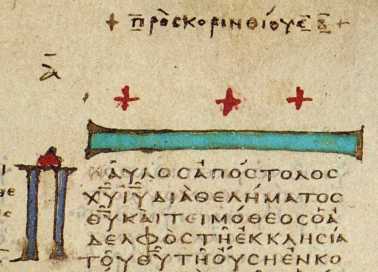 + ΠΡὸϹ ΚΟΡΙΝΘΙΟΥϹ Β̅ +
Α̅
ΠΑΥΛΟϹΑΠΌϹΤΟΛΟϹ
Χ̅Υ̅Ι̅Υ̅ΔΙᾺΘΕΛΉΜΑΤΟϹ
Θ̅Υ̅ΚΑΙΤΕΙΜΌΘΕΟϹὉΑ
ΔΕΛΦῸϹΤΗ͂ΕΚΚΛΗϹΊΑ
ΤΟΥ͂Θ̅Υ̅ΤΗ͂ΟΎϹΗΕΝΚΟ